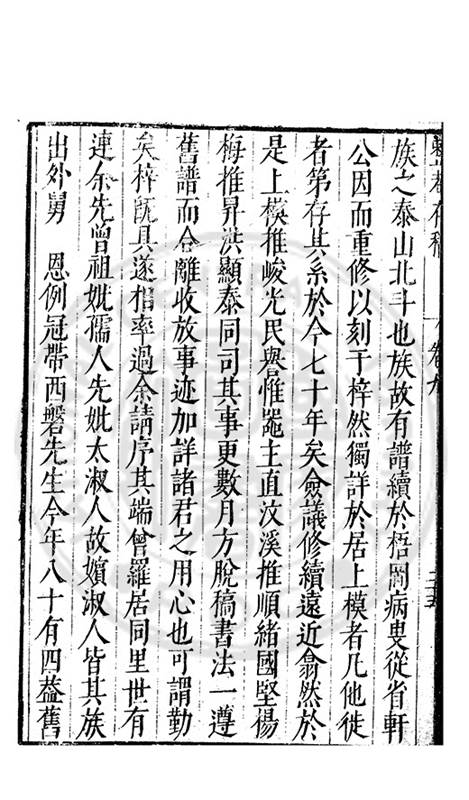 存稿 卷九
族之泰山北斗也族故有譜續於梧岡病叟從省軒
公因而重修以刻于梓然獨詳於居上模者凡他徙
者第存其系於今七十年矣僉議修續遠近翕然於
是上模推峻光民譽惟器主直汶溪推順緒國堅楊
梅推昇洪顯泰同司其事更數月方脫稿書法一遵
舊譜而合離收放事迹加詳諸君之用心也可謂勤
矣梓既具遂相率過余請序其端曾羅居同里世有
連余先曾祖妣孺人先妣太淑人故嬪淑人皆其族
出外舅 恩例冠帶西磐先生今年八十有四葢舊